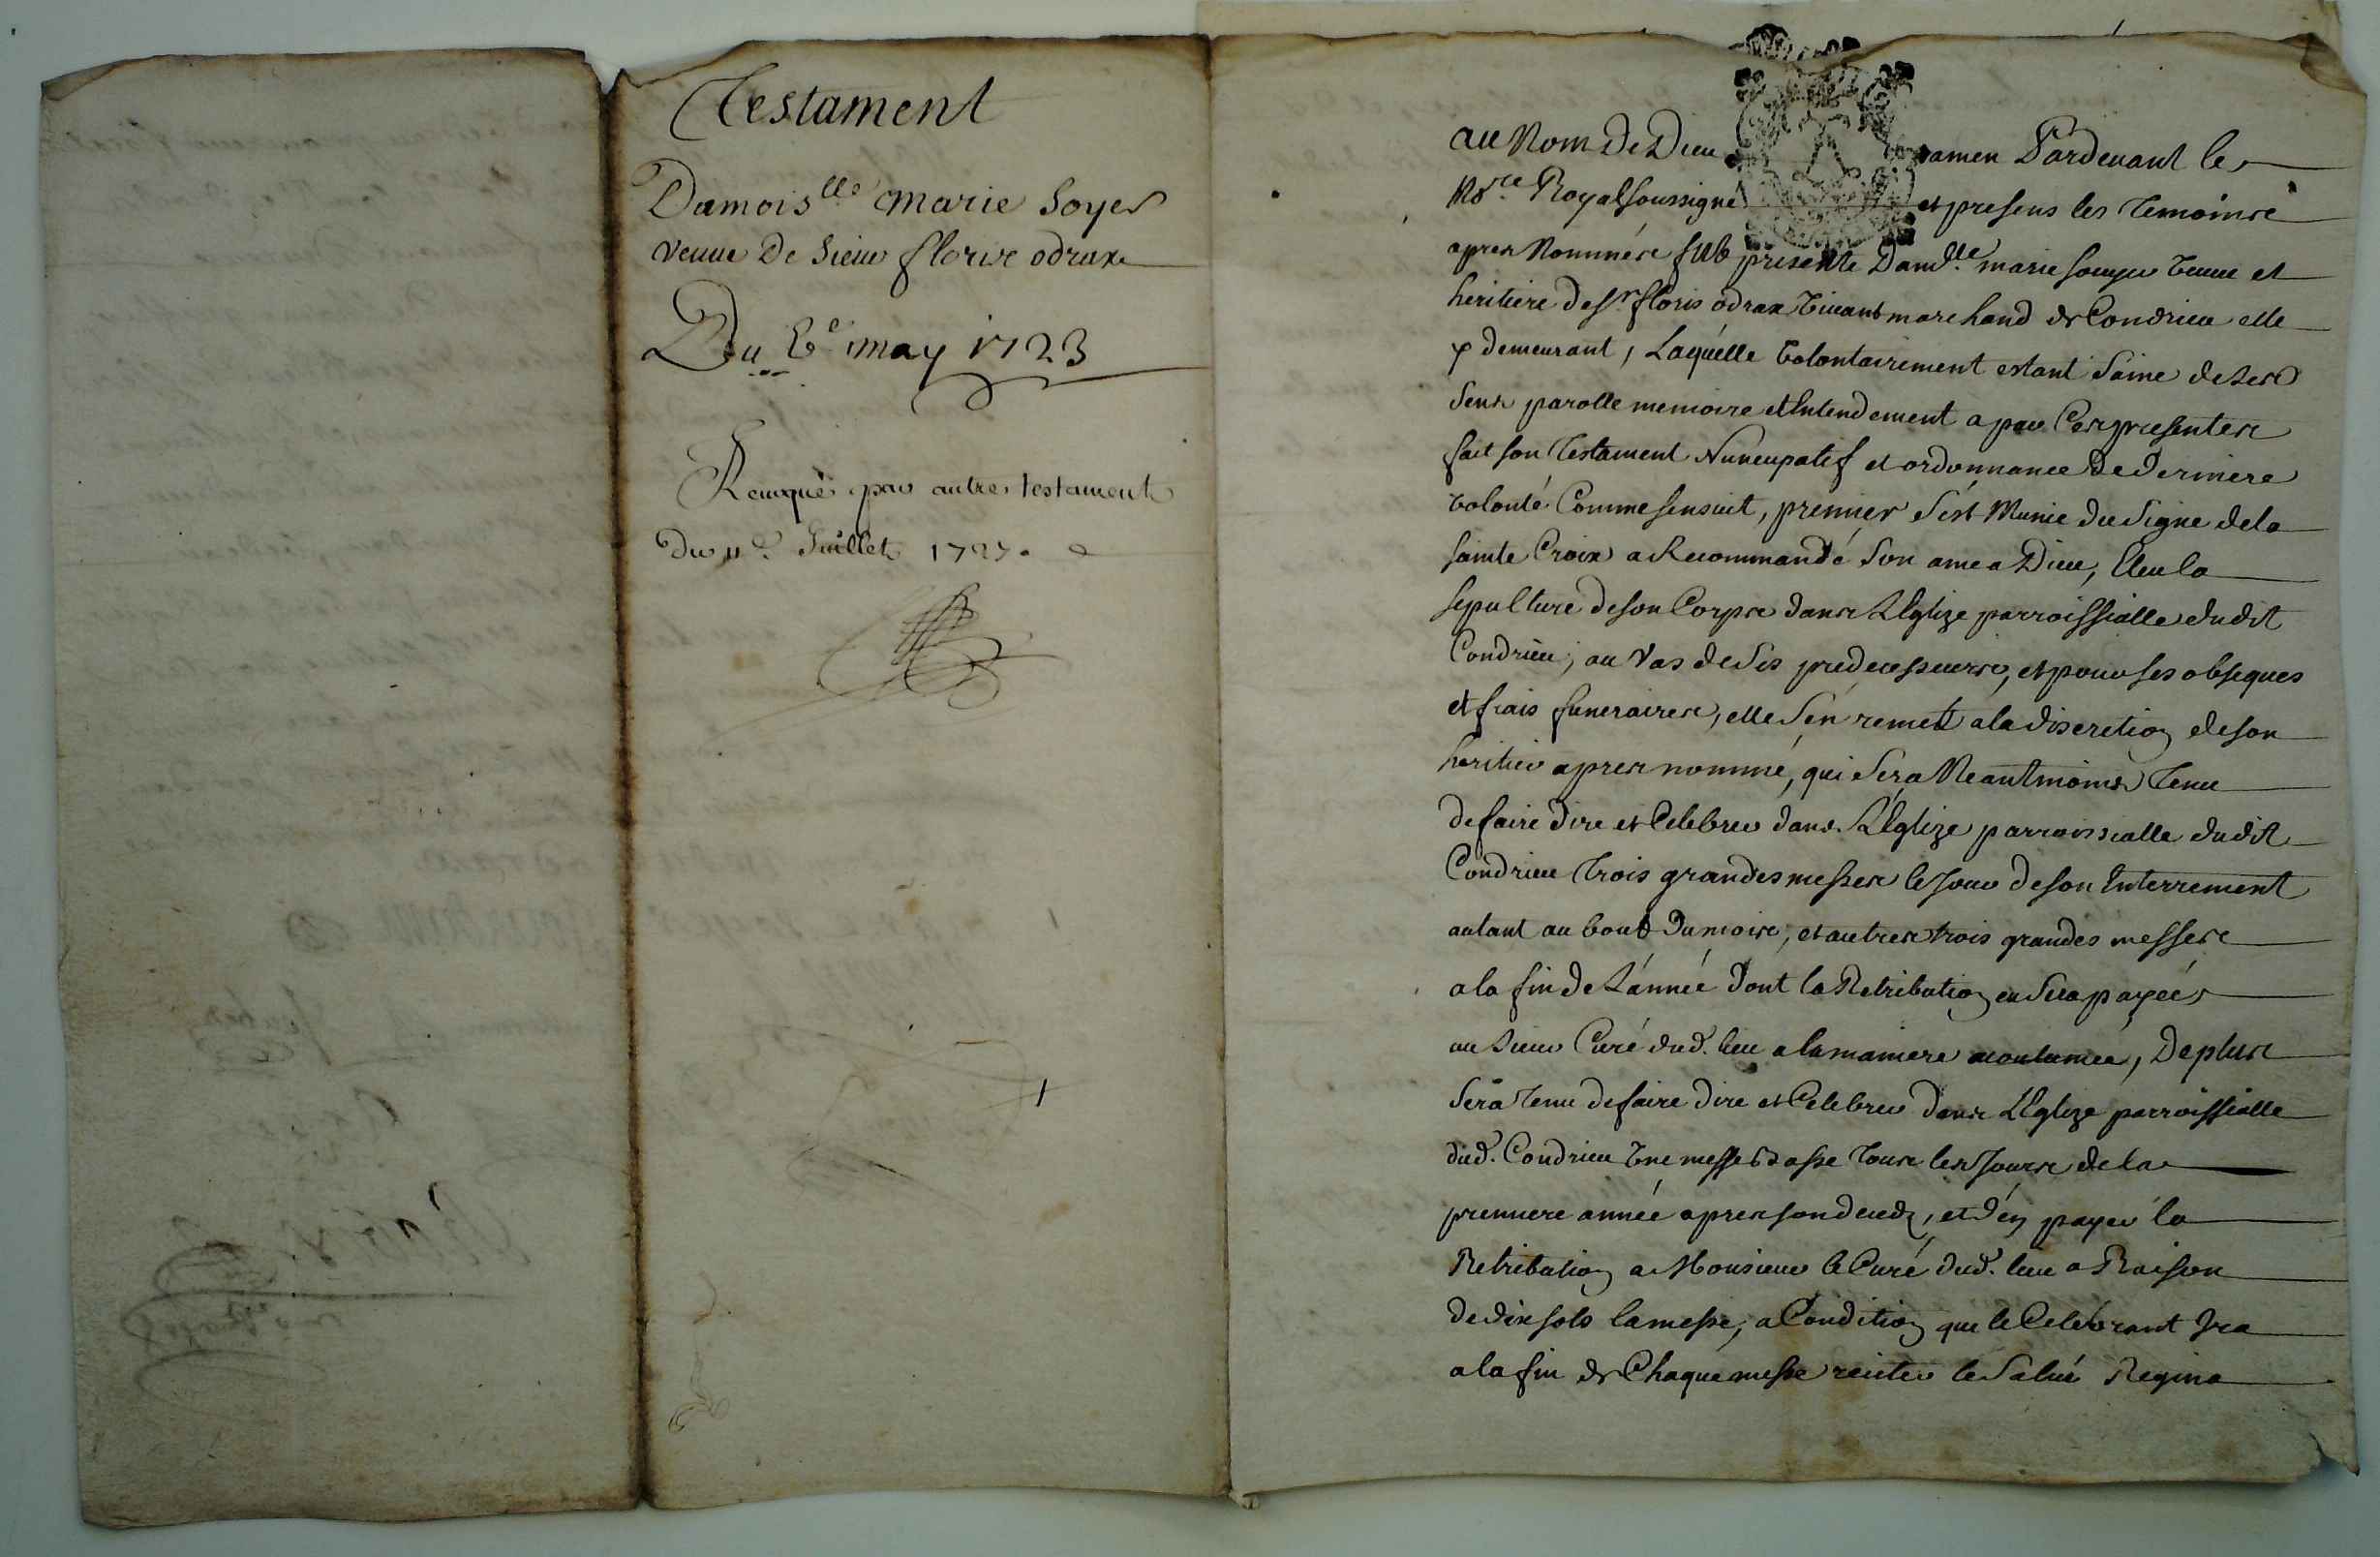 Testament
Damois.lle Marie Soyer
veuve De Sieur floris odrax
Du 6e may 1723
Reuoqué par autre testament
Du 11e Juillet 1727.
au Nom De Dieu amen Pardeuant le
No.re Royal soussigné et presens les temoins
apres Nommés fut presente Dam.lle marie soyer veuue et
heritiere de Sr floris odrax viuant marchand de Condrieu elle
y demeurant, Laquelle volontairement estant saine de ses
sens parolle memoire et Entendement a par Ces presentes
fait son Testament Nuncupatif et ordonnance De Derniere
volonté Comme sensuit, premier s'est Munie du signe de la
sainte Croix a Recommandé son ame a Dieu, Eleu la
sepulture de son Corps dans L'Eglize parroissialle dudit
Condrieu, au vas de ses predecesseurs, et pour ses obseques
et frais funeraires, elle s'en remet a la discretion de son
heritier apres nommé, qui sera Neantmoins Tenu
de faire dire et Celebrer dans L'Eglize parroissialle dudit
Condrieu Trois grandes messes le Jour de son Enterrement
autant au bout Du mois, et autres trois grandes messes
a la fin de L'année Dont la Retribution en sera payeé
au sieur Curé dud. lieu a la maniere acoutumeé, De plus
sera tenu de faire dire et Celebrer Dans L'Eglize parroissialle
dud. Condrieu Une messe basse Tous les Jours de la
premiere année apres son deceds, et d'en payer la
Retribution a Monsieur le Curé dud. lieu a Raison
de dix sols la messe, a Condition que le Celebrant Ira
a la fin de Chaque messe reciter le Salué Regina